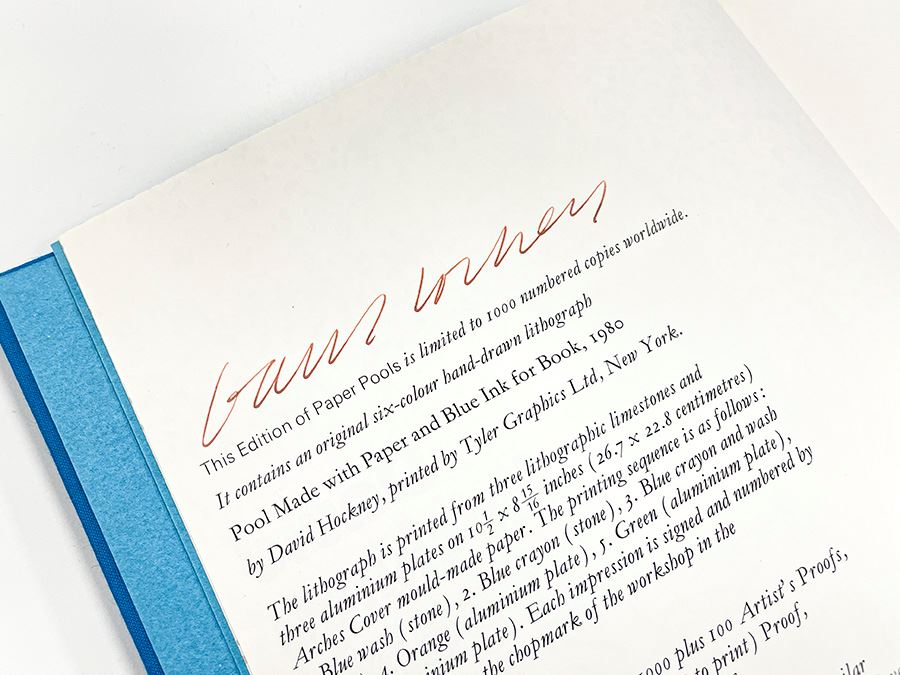 David Hockney
This Edition of Paper Pools is limited to 1000 numbered copies worldwide.
It contains an original six-colour hand-drawn lithograph
Pool Made with Paper and Blue Ink for Book, 1980
by David Hockney, printed by Tyler Graphics Ltd, New York.
The lithograph is printed from three lithographic limestones and
three aluminium plates on 10 1/2 × 8 15/16 inches (26.7 × 22.8 centimetres)
Arches Cover mould-made paper. The printing sequence is as follows:
Blue wash (stone), 2. Blue crayon (stone), 3. Blue crayon and wash
4. Orange (aluminium plate), 5. Green (aluminium plate),
minium plate). Each impression is signed and numbered by
the chopmark of the workshop in the
000 plus 100 Artist's Proofs,
to print) Proof,